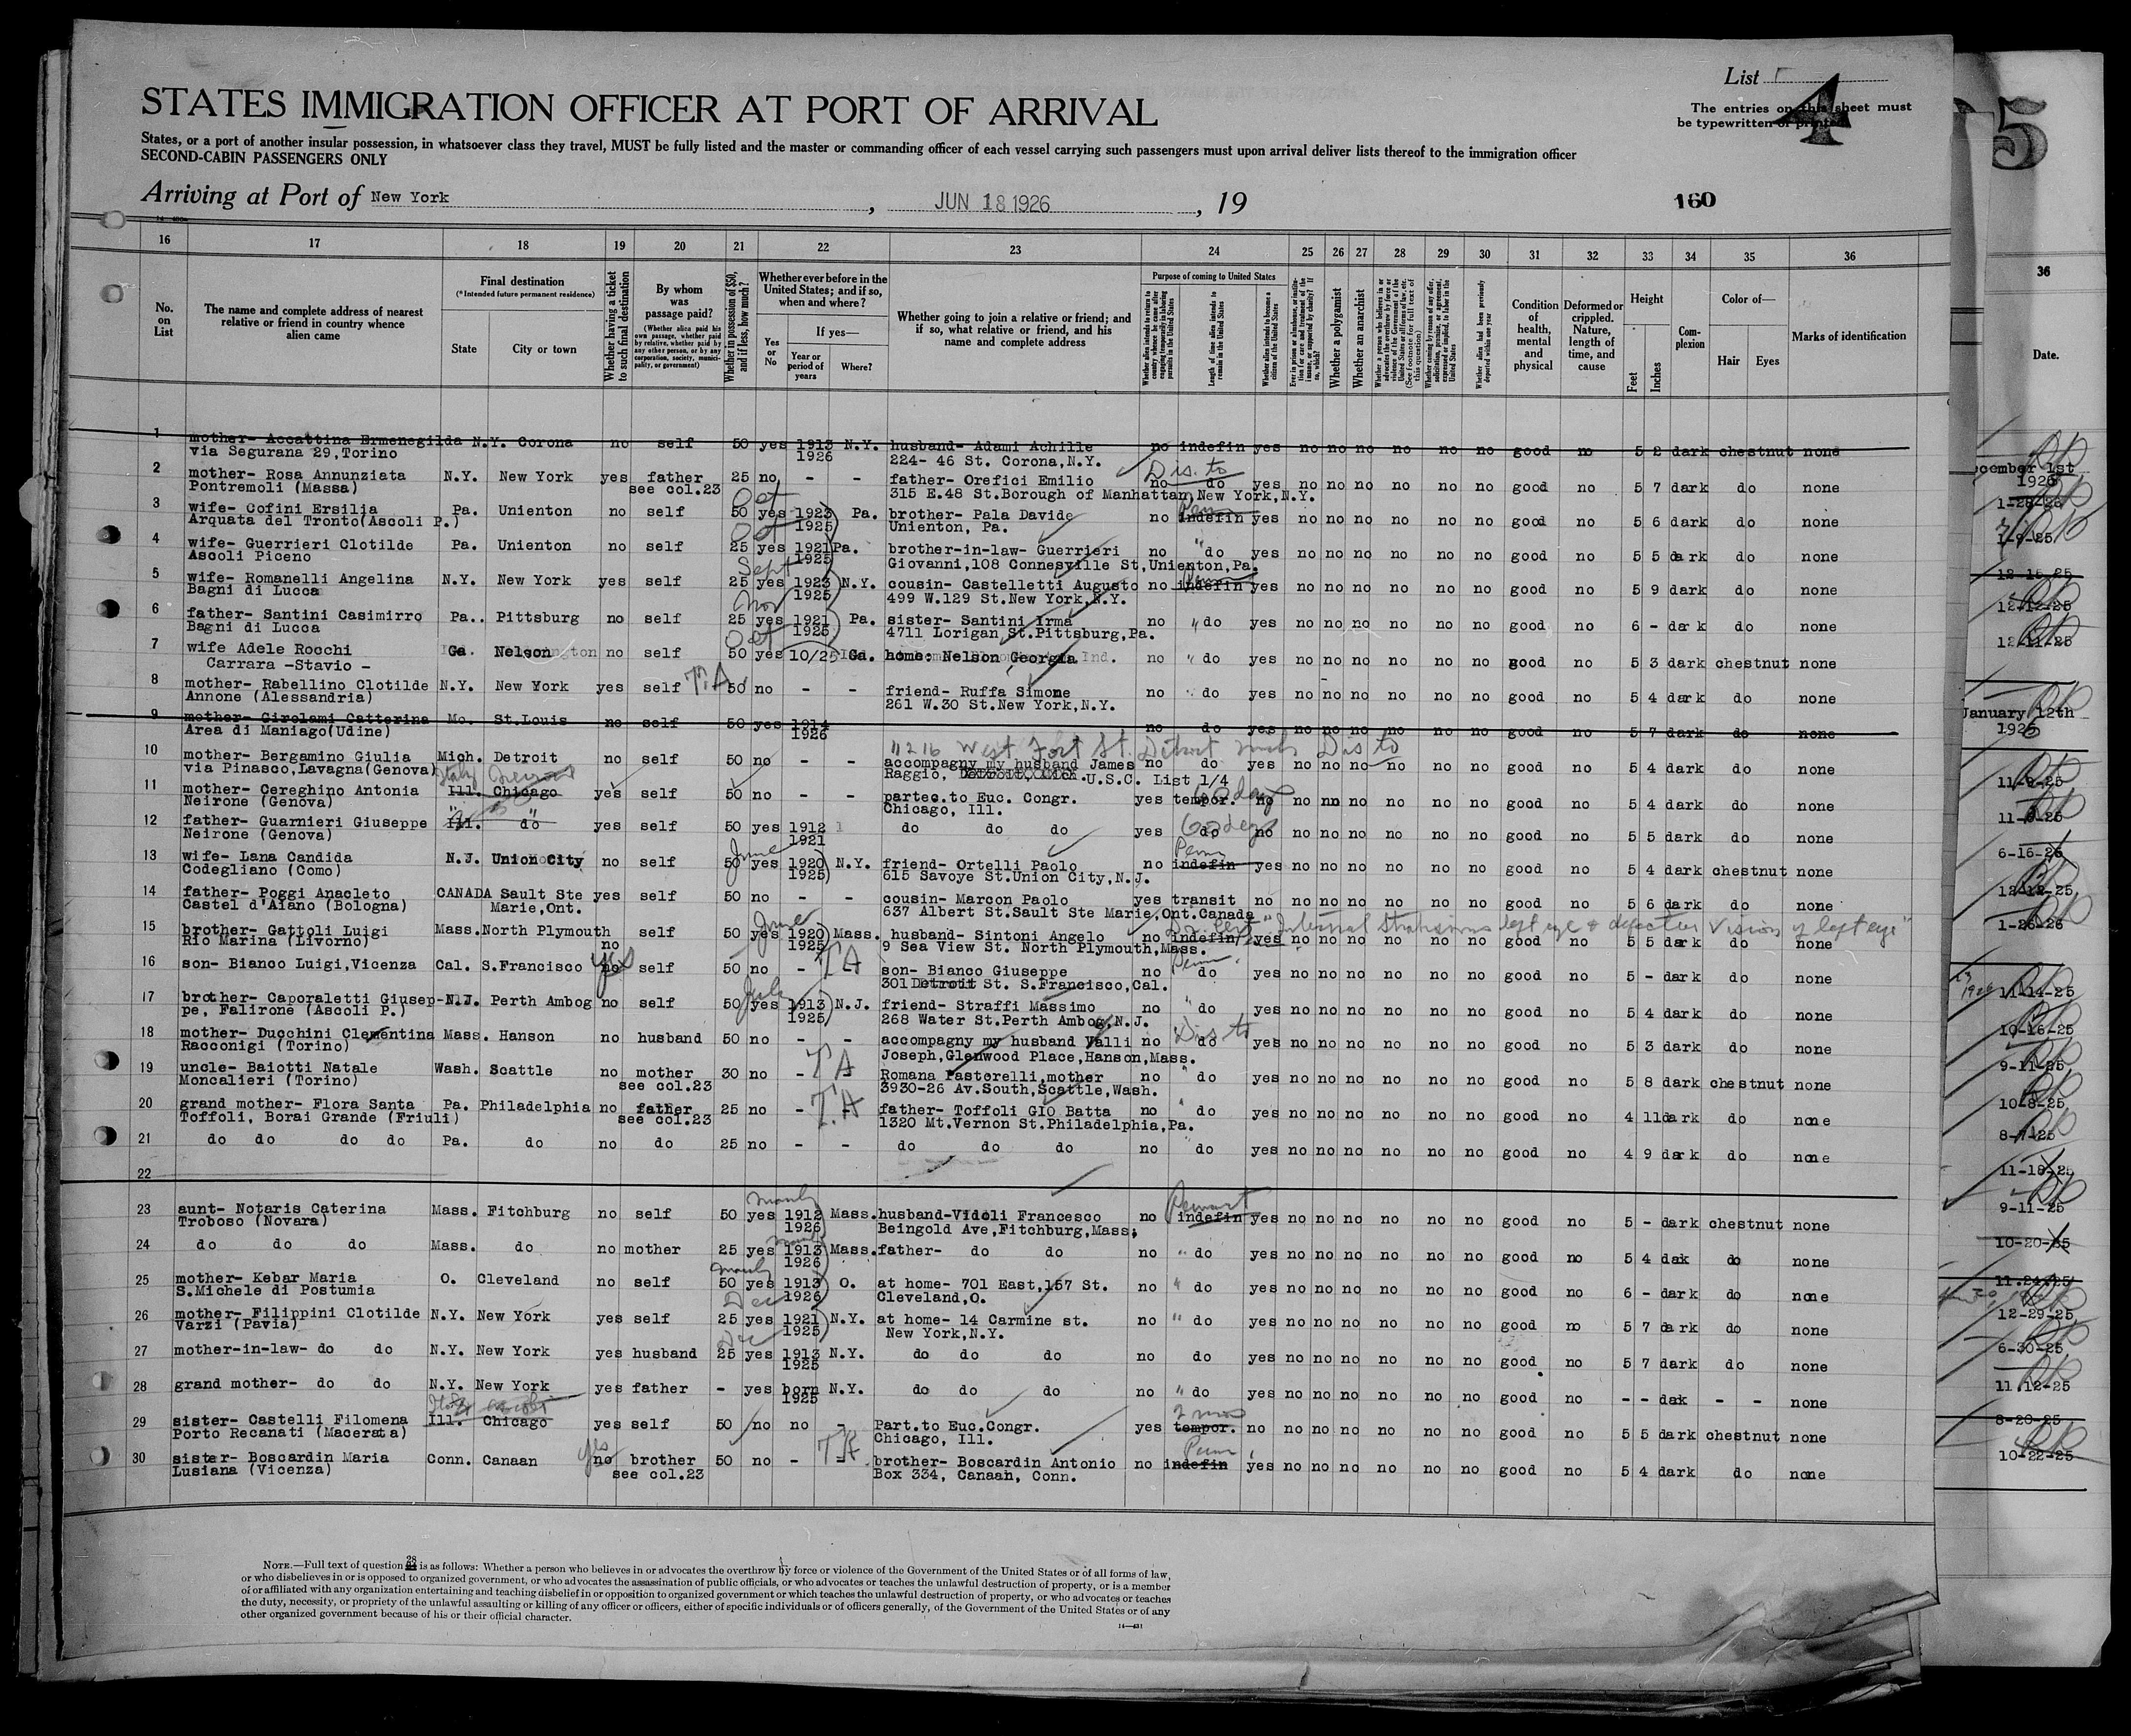 List
4
The entries on this sheet must
be typewritten or printed
STATES IMMIGRATION OFFICER AT PORT OF ARRIVAL
States, or a port of another insular possession, in whatsoever class they travel, MUST be fully listed and the master or commanding officer of each vessel carrying such passengers must upon arrival deliver lists thereof to the immigration officer
SECOND-CABIN PASSENGERS ONLY
Arriving at Port of New York, JUN 18 1926, 19
160
16 17 18 19 20 21 22 23 24 25 26 27 28 29 30 31 32 33 34 35 36
No. on List
The name and complete address of nearest relative or friend in country whence alien came
Final destination
(*Intended future permanent residence)
State
City or town
Whether having a ticket to such final destination
By whom was passage paid?
(Whether alien paid his own passage, whether paid by relative, whether paid by any other person, or by any corporation, society, municipality, or government)
Whether in possession of $50, and if less, how much?
Whether ever before in the United States; and if so, when and where?
Yes or No
If yes—
Year or period of years
Where?
Whether going to join a relative or friend; and if so, what relative or friend, and his name and complete address
Purpose of coming to United States
Whether alien intends to return to country whence he came after engaging temporarily in laboring pursuits in the United States
Length of time alien intends to remain in the United States
Whether alien intends to become a citizen of the United States
Whether a polygamist
Whether an anarchist
Condition of health, mental and physical
Deformed or crippled. Nature, length of time, and cause
Height
Feet
Inches
Complexion
Color of—
Hair
Eyes
Marks of identification
1 mother- Accattina Ermenegilda N.Y. Corona no self 50 yes 1913 N.Y. husband- Adami Achille no indefin yes no no no no no no good no 5 2 dark chestnut none
via Segurana 29,Torino 1926 224- 46 St. Corona,N.Y.
2 mother- Rosa Annunziata N.Y. New York yes father 25 no - - father- Orefici Emilio no do yes no no no no no no good no 5 7 dark do none
Pontremoli (Massa) see col.23 315 E.48 St.Borough of Manhattan,New York,N.Y.
3 wife- Cofini Ersilia Pa. Unienton no self 50 yes 1923 Pa. brother- Pala Davide no indefin yes no no no no no no good no 5 6 dark do none
Arquata del Tronto(Ascoli P.) Oct 1925 Unienton, Pa.
4 wife- Guerrieri Clotilde Pa. Unienton no self 25 yes 1921 Pa. brother-in-law- Guerrieri no " do yes no no no no no no good no 5 5 dark do none
Ascoli Piceno 1925 Giovanni,108 Connesville St,Unienton,Pa.
5 wife- Romanelli Angelina N.Y. New York yes self 25 yes 1923 N.Y. cousin- Castelletti Augusto no indefin yes no no no no no no good no 5 9 dark do none
Bagni di Lucca Sept 1925 499 W.129 St.New York,N.Y.
6 father- Santini Casimirro Pa.. Pittsburg no self 25 yes 1921 Pa. sister- Santini Irma no " do yes no no no no no no good no 6 - dark do none
Bagni di Lucca Nov 1925 4711 Lorigan St.Pittsburg,Pa.
7 wife Adele Rocchi Ga. Nelson no self 50 yes 10/25 Ga. home: Nelson Georgia no " do yes no no no no no no good no 5 3 dark chestnut none
Carrara -Stavio -
8 mother- Rabellino Clotilde N.Y. New York yes self T.A 50 no - - friend- Ruffa Simone no " do yes no no no no no no good no 5 4 dark do none
Annone (Alessandria) 261 W.30 St.New York,N.Y.
9 mother- Girolami Catterina Mo. St.Louis no self 50 yes 1914 no do yes no no no no no no good no 5 7 dark do none
Area di Maniago(Udine) 1926
11216 West Fort St. Detroit Mich Dis to
10 mother- Bergamino Giulia Mich. Detroit no self 50 no - - accompagny my husband James no do yes no no no no no no good no 5 4 dark do none
via Pinasco,Lavagna(Genova) Raggio, U.S.C. List 1/4
11 mother- Cereghino Antonia Ill. Chicago yes self 50 no - - partec.to Euc. Congr. yes tempor. no no no no no no no good no 5 4 dark do none
Neirone (Genova) Chicago, Ill. 60 days
12 father- Guarnieri Giuseppe Ill. do yes self 50 yes 1912 do do do yes do no no no no no no no good no 5 5 dark do none
Neirone (Genova) 1921
13 wife- Lana Candida N.J. Union City no self 50 yes 1920 N.Y. friend- Ortelli Paolo no indefin yes no no no no no no good no 5 4 dark chestnut none
Codegliano (Como) June 1925 615 Savoye St.Union City,N.J.
14 father- Poggi Anacleto CANADA Sault Ste yes self 50 no - - cousin- Marcon Paolo yes transit no no no no no no no good no 5 6 dark do none
Castel d'Aiano (Bologna) Marie,Ont. 637 Albert St.Sault Ste Marie,Ont.Canada
"Internal Strabismus left eye & defective vision of left eye"
15 brother- Gattoli Luigi Mass. North Plymouth no self 50 yes 1920 Mass. husband- Sintoni Angelo no indefin yes no no no no no no good no 5 5 dark do none
Rio Marina (Livorno) June 1925 9 Sea View St. North Plymouth,Mass.
16 son- Bianco Luigi,Vicenza Cal. S.Francisco no yes self 50 no - TA son- Bianco Giuseppe no do yes no no no no no no good no 5 - dark do none
301 Detroit St. S.Francisco,Cal.
17 brother- Caporaletti Giusep- N.J. Perth Ambog no self 50 yes 1913 N.J. friend- Straffi Massimo no " do yes no no no no no no good no 5 4 dark do none
pe, Falirone (Ascoli P.) July 1925 268 Water St.Perth Ambog,N.J.
18 mother- Ducchini Clementina Mass. Hanson no husband 50 no - - accompagny my husband Valli no do yes no no no no no no good no 5 3 dark do none
Racconigi (Torino) Joseph,Glenwood Place,Hanson,Mass. Dis to
19 uncle- Baiotti Natale Wash. Scattle no mother 30 no - TA Romana Pastorelli,mother no " do yes no no no no no no good no 5 8 dark chestnut none
Moncalieri (Torino) see col.23 3930-26 Av.South,Scattle,Wash.
20 grand mother- Flora Santa Pa. Philadelphia no father 25 no - T.A father- Toffoli GIO Batta no " do yes no no no no no no good no 4 11 dark do none
Toffoli, Borai Grande (Friuli) see col.23 1320 Mt.Vernon St.Philadelphia,Pa.
21 do do do do Pa. do no do 25 no - - do do do no " do yes no no no no no no good no 4 9 dark do none
22
23 aunt- Notaris Caterina Mass. Fitchburg no self 50 yes 1912 Mass. husband-Vidoli Francesco no indefin yes no no no no no no good no 5 - dark chestnut none
Troboso (Novara) 1926 Beingold Ave,Fitchburg,Mass.
24 do do do Mass. do no mother 25 yes 1913 Mass. father- do do no " do yes no no no no no no good no 5 4 dak do none
1926
25 mother- Kebar Maria O. Cleveland no self 50 yes 1913 O. at home- 701 East,157 St. no " do yes no no no no no no good no 6 - dark do none
S.Michele di Postumia 1926 Cleveland,O.
26 mother- Filippini Clotilde N.Y. New York yes self 25 yes 1921 N.Y. at home- 14 Carmine st. no " do yes no no no no no no good no 5 7 dark do none
Varzi (Pavia) Dec 1925 New York,N.Y.
27 mother-in-law- do do N.Y. New York yes husband 25 yes 1913 N.Y. do do do no do yes no no no no no no good no 5 7 dark do none
Dec 1925
28 grand mother- do do N.Y. New York yes father - yes born N.Y. do do do no " do yes no no no no no no good no - - dak - - none
1925
29 sister- Castelli Filomena Ill. Chicago yes self 50 no no - Part.to Euc.Congr. yes tempor. no no no no no no no good no 5 5 dark chestnut none
Porto Recanati (Macerata) Chicago, Ill. 2 mos
30 sister- Boscardin Maria Conn. Canaan no yes brother 50 no - - brother- Boscardin Antonio no indefin yes no no no no no no good no 5 4 dark do none
Lusiana (Vicenza) see col.23 Box 334, Canaan, Conn.
NOTE.—Full text of question 28 is as follows: Whether a person who believes in or advocates the overthrow by force or violence of the Government of the United States or of all forms of law,
or who disbelieves in or is opposed to organized government, or who advocates the assassination of public officials, or who advocates or teaches the unlawful destruction of property, or is a member
of or affiliated with any organization entertaining and teaching disbelief in or opposition to organized government or which teaches the unlawful destruction of property, or who advocates or teaches
the duty, necessity, or propriety of the unlawful assaulting or killing of any officer or officers, either of specific individuals or of officers generally, of the Government of the United States or of any
other organized government because of his or their official character.
5
36
Date.
1-9-25
12-16-25
12-12-25
12-11-25
January 12th
11-9-25
6-16-26
12-12-25
1-26-26
11-14-25
10-16-25
9-11-25
10-8-25
8-7-25
11-18-25
9-11-25
10-20-25
11.24.25
12-29-25
6-30-25
11.12-25
8-20-25
10-22-25